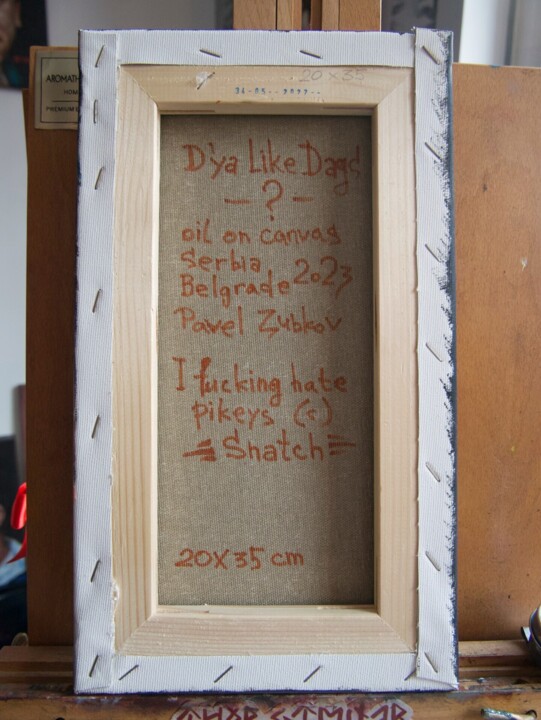 20 x 35
AROMATH
HOM
PREMIUM
D'ya Like Dags
- ? -
oil on canvas
Serbia
Belgrade 2023
Pavel Zubkov
I fucking hate
pikeys (c)
Snatch
20x35 cm